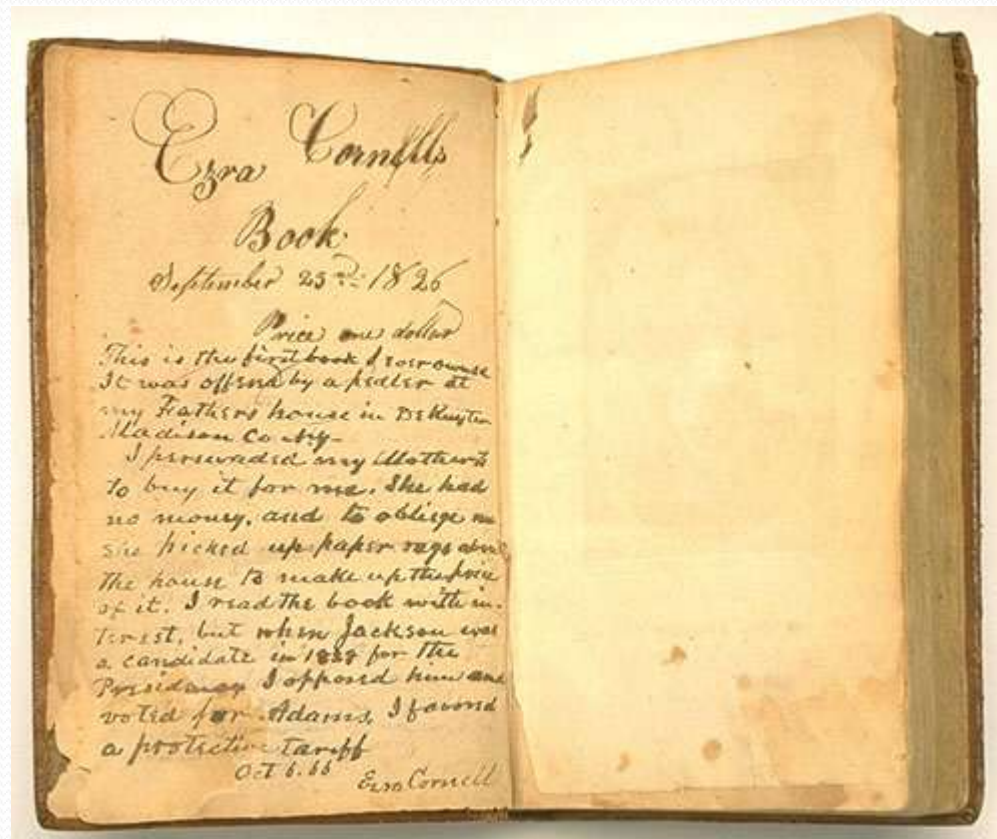 Ezra Cornell's
Book.
September 25rd. 1826
Price one dollar
This is the first book I ever owned
It was offerd by a pedler at
my Fathers house in DeRuyter
Madison Co NY-
I perswaded my Mother to
to buy it for me. She had
no money, and to obliege me
she picked up paper rags about
the house to make up the price
of it. I read the book with in-
terest, but when Jackson was
a candidate in 1828 for the
Presidency I opposed him and
voted for Adams, I favord
a protective tariff
Oct 6. 66
Ezra Cornell